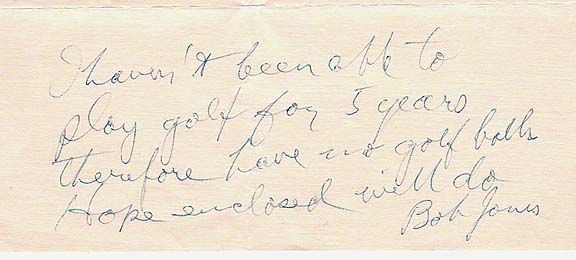 I haven't been able to
play golf for 5 years
therefore have no golf balls
Hope enclosed will do
Bob Jones